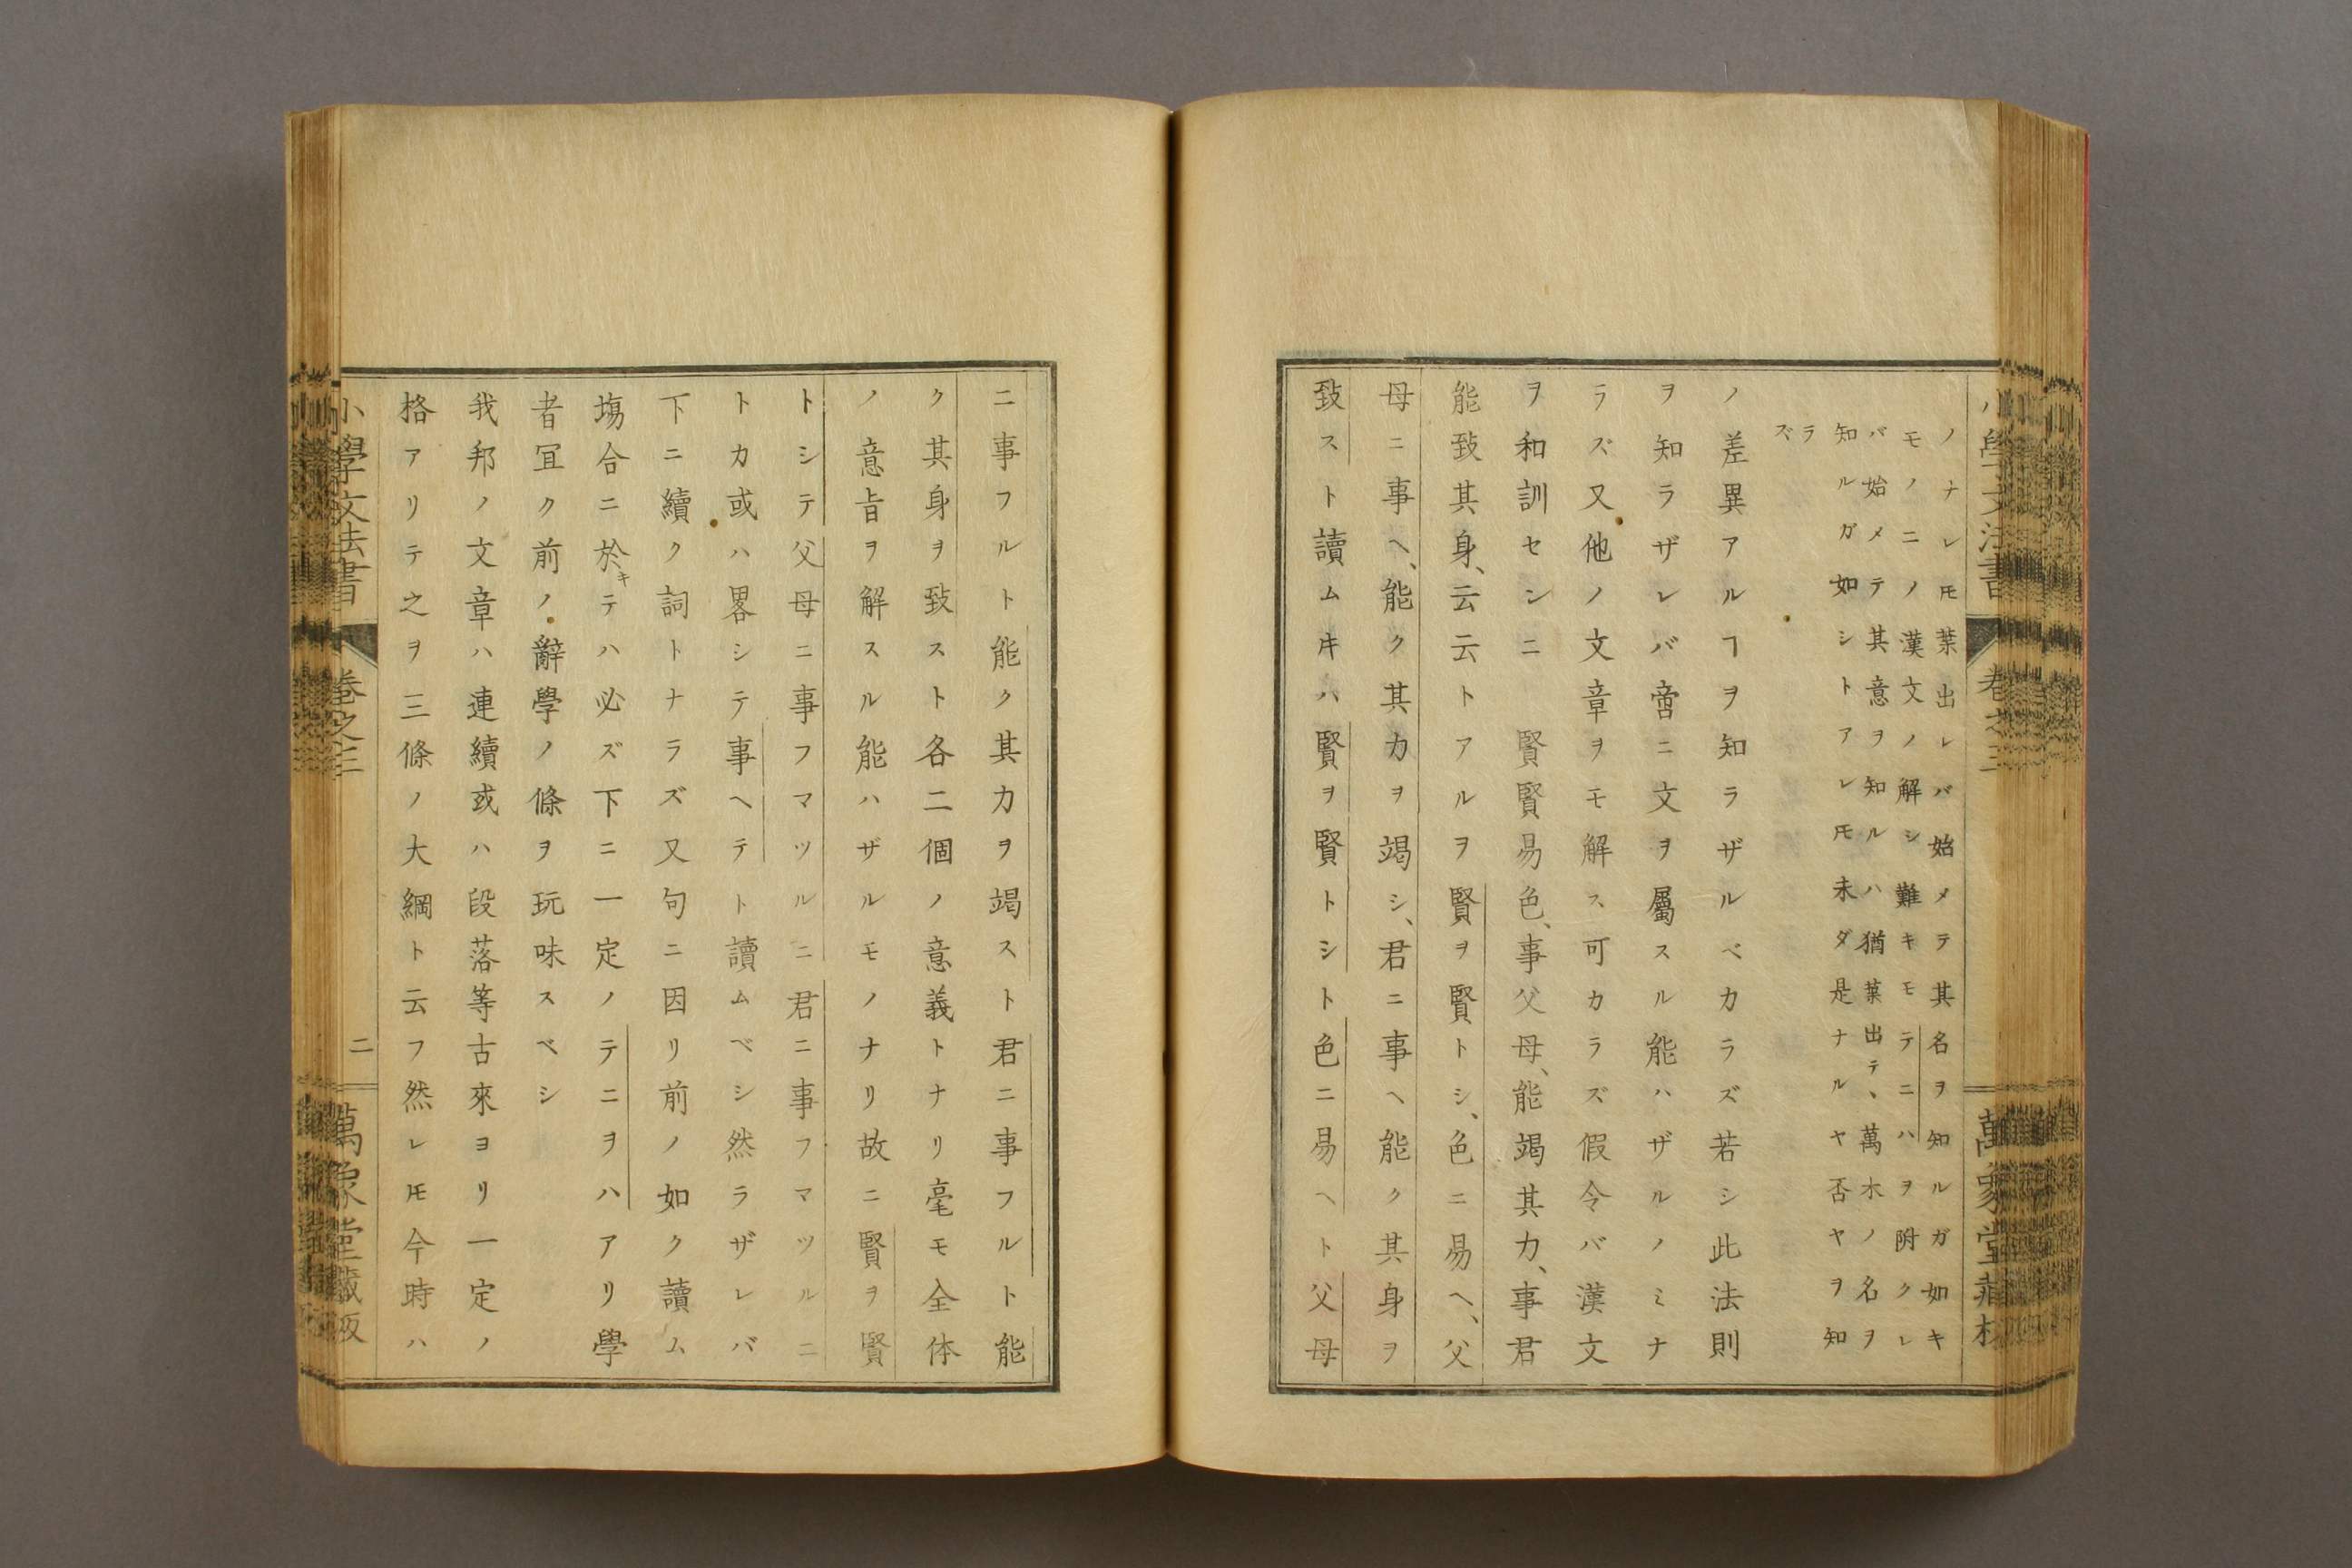 ノナレ𪜈葉出レバ始メテ其名ヲ知ルガ如キ
モノニノ漢文ノ解シ難キモテニハヲ附クレ
バ始メテ其意ヲ知ルハ猶葉出テ、萬木ノ名ヲ
知ルガ如シトアレ𪜈未ダ是ナルヤ否ヤヲ知
ラ
ズ
ノ差異アルヿヲ知ラザルベカラズ若シ此法則
ヲ知ラザレバ啻ニ文ヲ屬スル能ハザルノミナ
ラズ又他ノ文章ヲモ解ス可カラズ假令バ漢文
ヲ和訓センニ 賢賢易色、事父母、能竭其力、事君
能致其身、云云トアルヲ賢ヲ賢トシ、色ニ易ヘ、父
母ニ事ヘ、能ク其力ヲ竭シ、君ニ事ヘ能ク其身ヲ
致スト讀ムキハ賢ヲ賢トシト色ニ易ヘト父母
小學文法書 卷之三 萬象堂藏板
ニ事フルト能ク其力ヲ竭スト君ニ事フルト能
ク其身ヲ致スト各二個ノ意義トナリ毫モ全体
ノ意旨ヲ解スル能ハザルモノナリ故ニ賢ヲ賢
トシテ父母ニ事フマツルニ君ニ事フマツルニ
トカ或ハ畧シテ事ヘテト讀ムベシ然ラザレバ
下ニ續ク詞トナラズ又句ニ因リ前ノ如ク讀ム
塲合ニ於キテハ必ズ下ニ一定ノテニヲハアリ學
者冝ク前ノ辭學ノ條ヲ玩味スベシ
我邦ノ文章ハ連續或ハ段落等古來ヨリ一定ノ
格アリテ之ヲ三條ノ大綱ト云フ然レ𪜈今時ハ
小學文法書 卷之三 二 萬象堂藏板